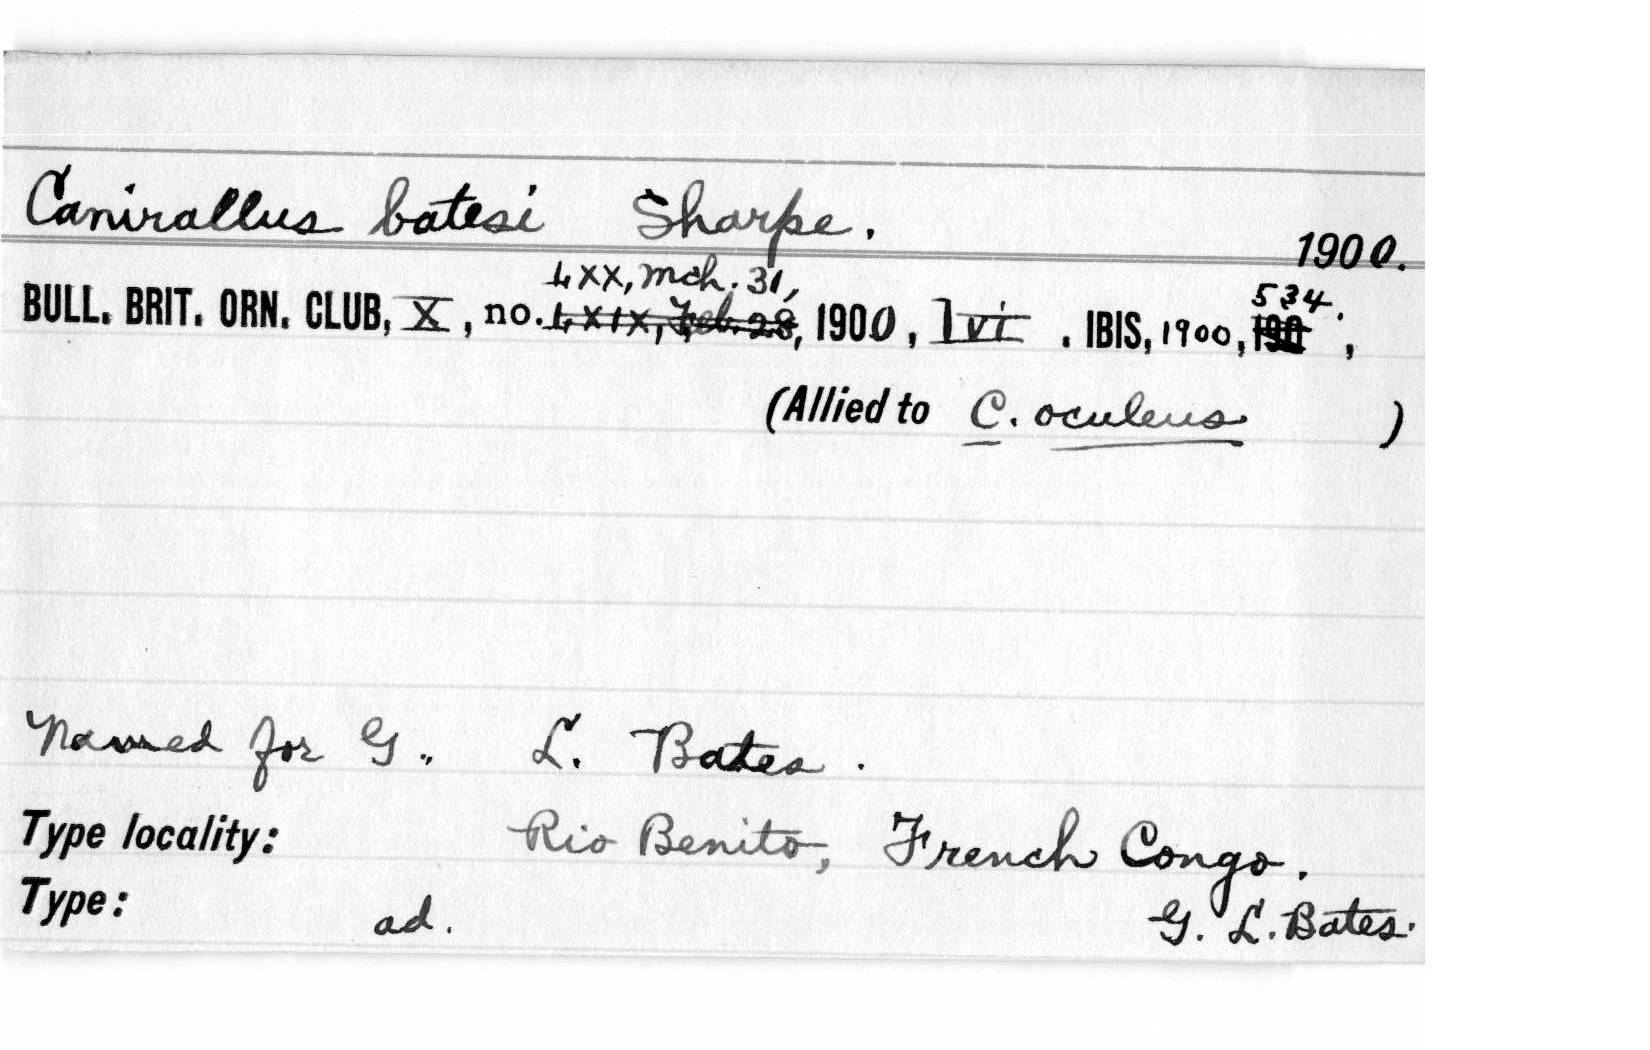 Canirallus batesi Sharpe.
1900.
LXX, Mch. 31,
534
BULL. BRIT. ORN. CLUB, X, no. LXIX, Feb. 28, 1900, lvi . IBIS, 1900, 190 ,
(Allied to C. oculeus )
Named for G. L. Bates.
Type locality: Rio Benito, French Congo.
Type: ad. G. L. Bates.